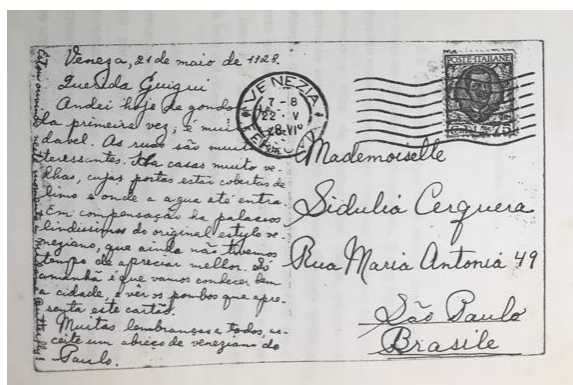 Veneza, 21 de maio de 1928.
Querida Guigui
Andei hoje de gondo
la primeira vez; é mui
davel. As ruas são mui
teressantes. Ha casas muito ve-
lhas, cujas portas estão cobertas de
limo e onde a agua até entra.
Em compensação ha palacios
lindissimos do original estylo ve-
neziano, que ainda não tivemos
tempo de apreciar melhor. Só
amanhã é que vamos conhecer bem
a cidade, e vêr os pombos que apre-
senta este cartão.
Muitas lembranças a todos, ac-
ceite um abraço de veneziano do
Paulo.
Estou ouvindo neste momento Butterfly!
VENEZIA
7 - 8
22 V
28 VI
FERROVIA
POSTE ITALIANE
75
Mademoiselle
Sidulia Cerquera
Rua Maria Antonia 49
São Paulo
Brasile